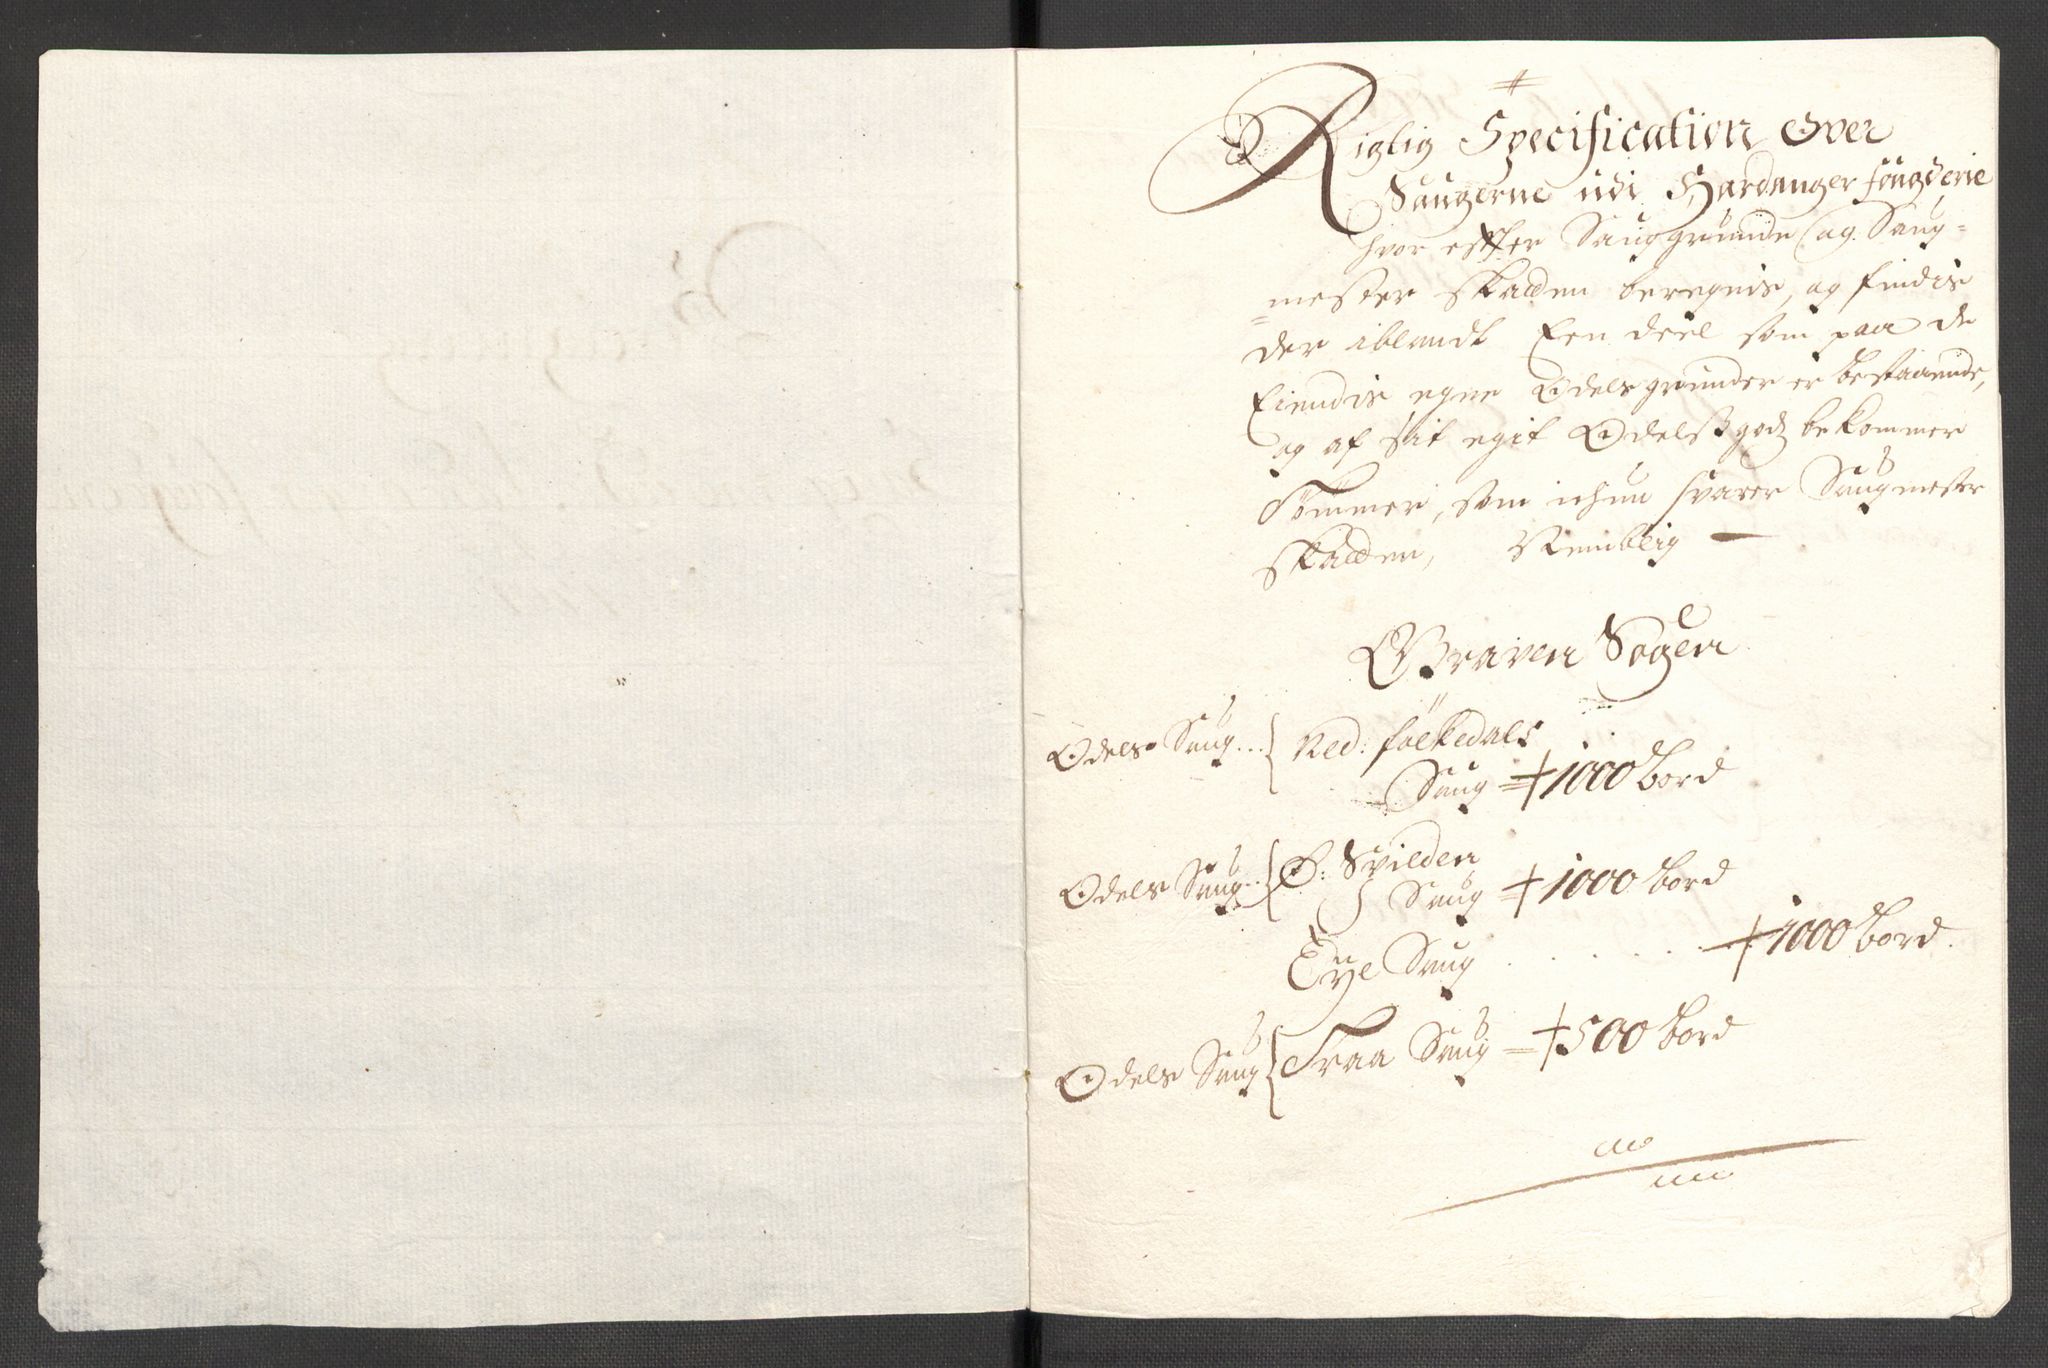 Rigtig Specification Over
Saugerne udi Hardanger fougderie
hvor effter Sauggrunde og Saug-
mester Skatten beregnis, og findis
der iblandt Een deel som paa de
Eiendis egne Odels grunder er bestaaende,
og af sit egit Odelsgodz bekommer
Tømmer, som ichun svarer Saugmester
Skatten, Nemblig
Graven Sogen
Odels Saug... Ned: folkedals
Saug = 1000 bord
Odels Saug.. Ø: Spilden
Saug = 1000 bord
Eye Saug . . . . . 1000 bord.
Odels Saug Traa Saug = 500 bord